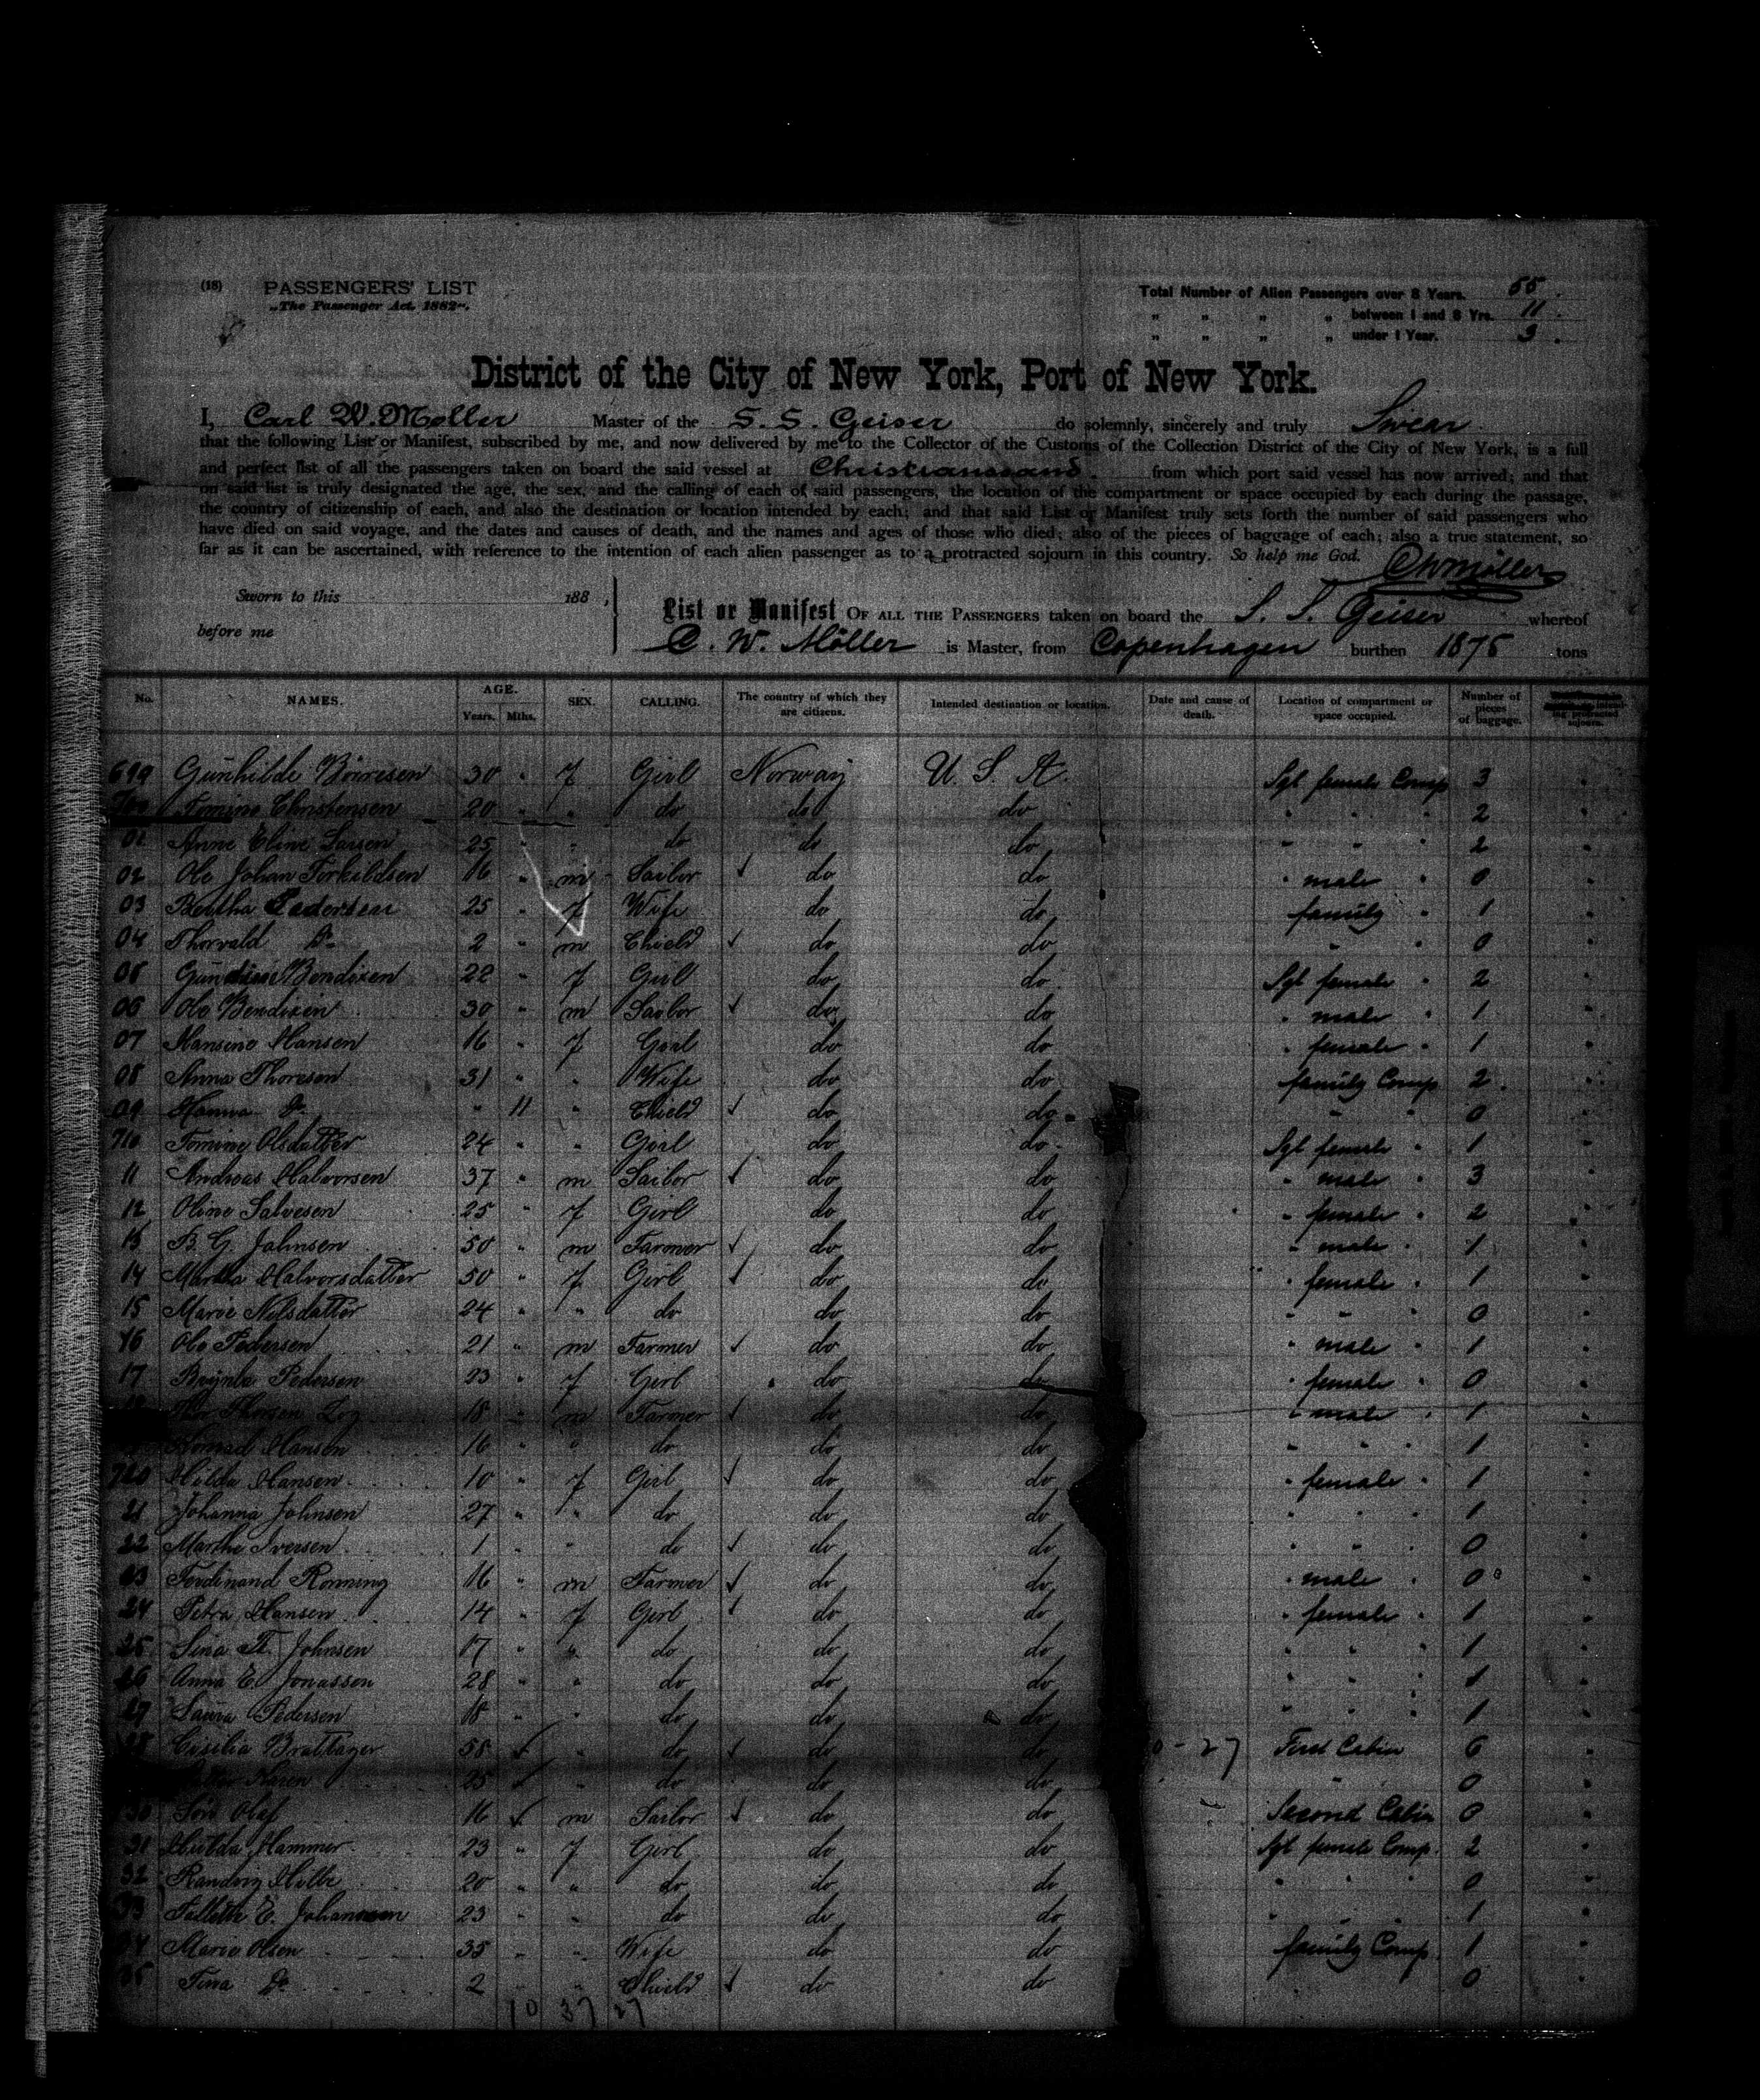 (18) PASSENGERS' LIST
„The Passenger Act. 1882".
Total Number of Alien Passengers over 8 Years. 55.
„ „ „ „ between 1 and 8 Yrs. 11.
„ „ „ „ under 1 Year. 3.
District of the City of New York, Port of New York.
I, Carl W. Moller Master of the S. S. Geiser do solemnly, sincerely and truly Swear
that the following List or Manifest, subscribed by me, and now delivered by me to the Collector of the Customs of the Collection District of the City of New York, is a full
and perfect list of all the passengers taken on board the said vessel at Christianssand. from which port said vessel has now arrived; and that
on said list is truly designated the age, the sex, and the calling of each of said passengers, the location of the compartment or space occupied by each during the passage,
the country of citizenship of each, and also the destination or location intended by each; and that said List or Manifest truly sets forth the number of said passengers who
have died on said voyage, and the dates and causes of death, and the names and ages of those who died; also of the pieces of baggage of each; also a true statement, so
far as it can be ascertained, with reference to the intention of each alien passenger as to a protracted sojourn in this country. So help me God. CWMöller
Sworn to this 188 ,
before me
List or Manifest OF ALL THE PASSENGERS taken on board the S. S. Geiser whereof
C. W. Möller is Master, from Copenhagen burthen 1875 tons
No. NAMES. AGE. Years. Mths. SEX. CALLING. The country of which they are citizens. Intended destination or location. Date and cause of death. Location of compartment or space occupied. Number of pieces of baggage. protracted sojourn.
699 Gunhilde 30 " f Girl Norway U. S. A. Sgl female Comp 3 "
700 Tomine Christensen 20 " " do do do " " " 2 "
01 Anne Eline Larsen 25 " " do do do " " " 2 "
02 Ole Johan Terkildsen 16 " m Sailor do do " male " 0 "
03 Bertha Pedersen 25 " f Wife do do family " 1 "
04 Thorvald Do 2 " m Chield do do " " 0 "
05 Bendixen 22 " f Girl do do Sgl female " 2 "
06 Ole Bendixen 30 " m Sailor do do " male " 1 "
07 Hansine Hansen 16 " f Girl do do " female " 1 "
08 Anna Thoresen 31 " " Wife do do family Comp 2 "
09 Hanna Do " 11 " Chield do do " " 0 "
710 Tomine Olsdatter 24 " " Girl do do Sgl female " 1 "
11 Andreas Halvorsen 37 " m Sailor do do " male " 3 "
12 Oline Salvesen 25 " f Girl do do " female " 2 "
13 B. G. Johnsen 50 " m Farmer do do " male " 1 "
14 Martha Halvorsdatter 50 " f Girl do do " female " 1 "
15 Marie Nilsdatter 24 " " do do do " " " 0 "
16 Ole Pedersen 21 " m Farmer do do " male " 1 "
17 Pedersen 23 " f Girl do do " female " 0 "
18 18 " m Farmer do do " male " 1 "
Konrad Hansen 16 " " do do do " " " 1 "
720 Hilda Hansen 10 " f Girl do do " female " 1 "
21 Johanna Johnsen 27 " " do do do " " " 1 "
22 Marthe Iversen 1 " do do do " " " 0 "
23 Ferdinand Ronning 16 " m Farmer do do " male " 0 "
24 Petra Hansen 14 " f Girl do do " female " 1 "
25 Sina Johnsen 17 " " do do do " " " 1 "
26 Anna E. Jonassen 28 " " do do do " " " 1 "
27 Laura Pedersen 18 " " do do do " " " 1 "
28 58 " do do do - 27 First Cabin 6 "
Karen 25 " do do do " 0 "
30 Olaf 16 m Sailor do do Second Cabin 0 "
31 Hulda Hammer 23 " f Girl do do Sgl female Comp. 2 "
32 20 " " do do do " " " 0 "
33 E. Johannesen 23 " " do do do " " " 1 "
34 Marie Olsen 35 " " Wife do do family Comp. 1 "
35 Tina Do 2 " " Chield do do 0 "
10 37 27